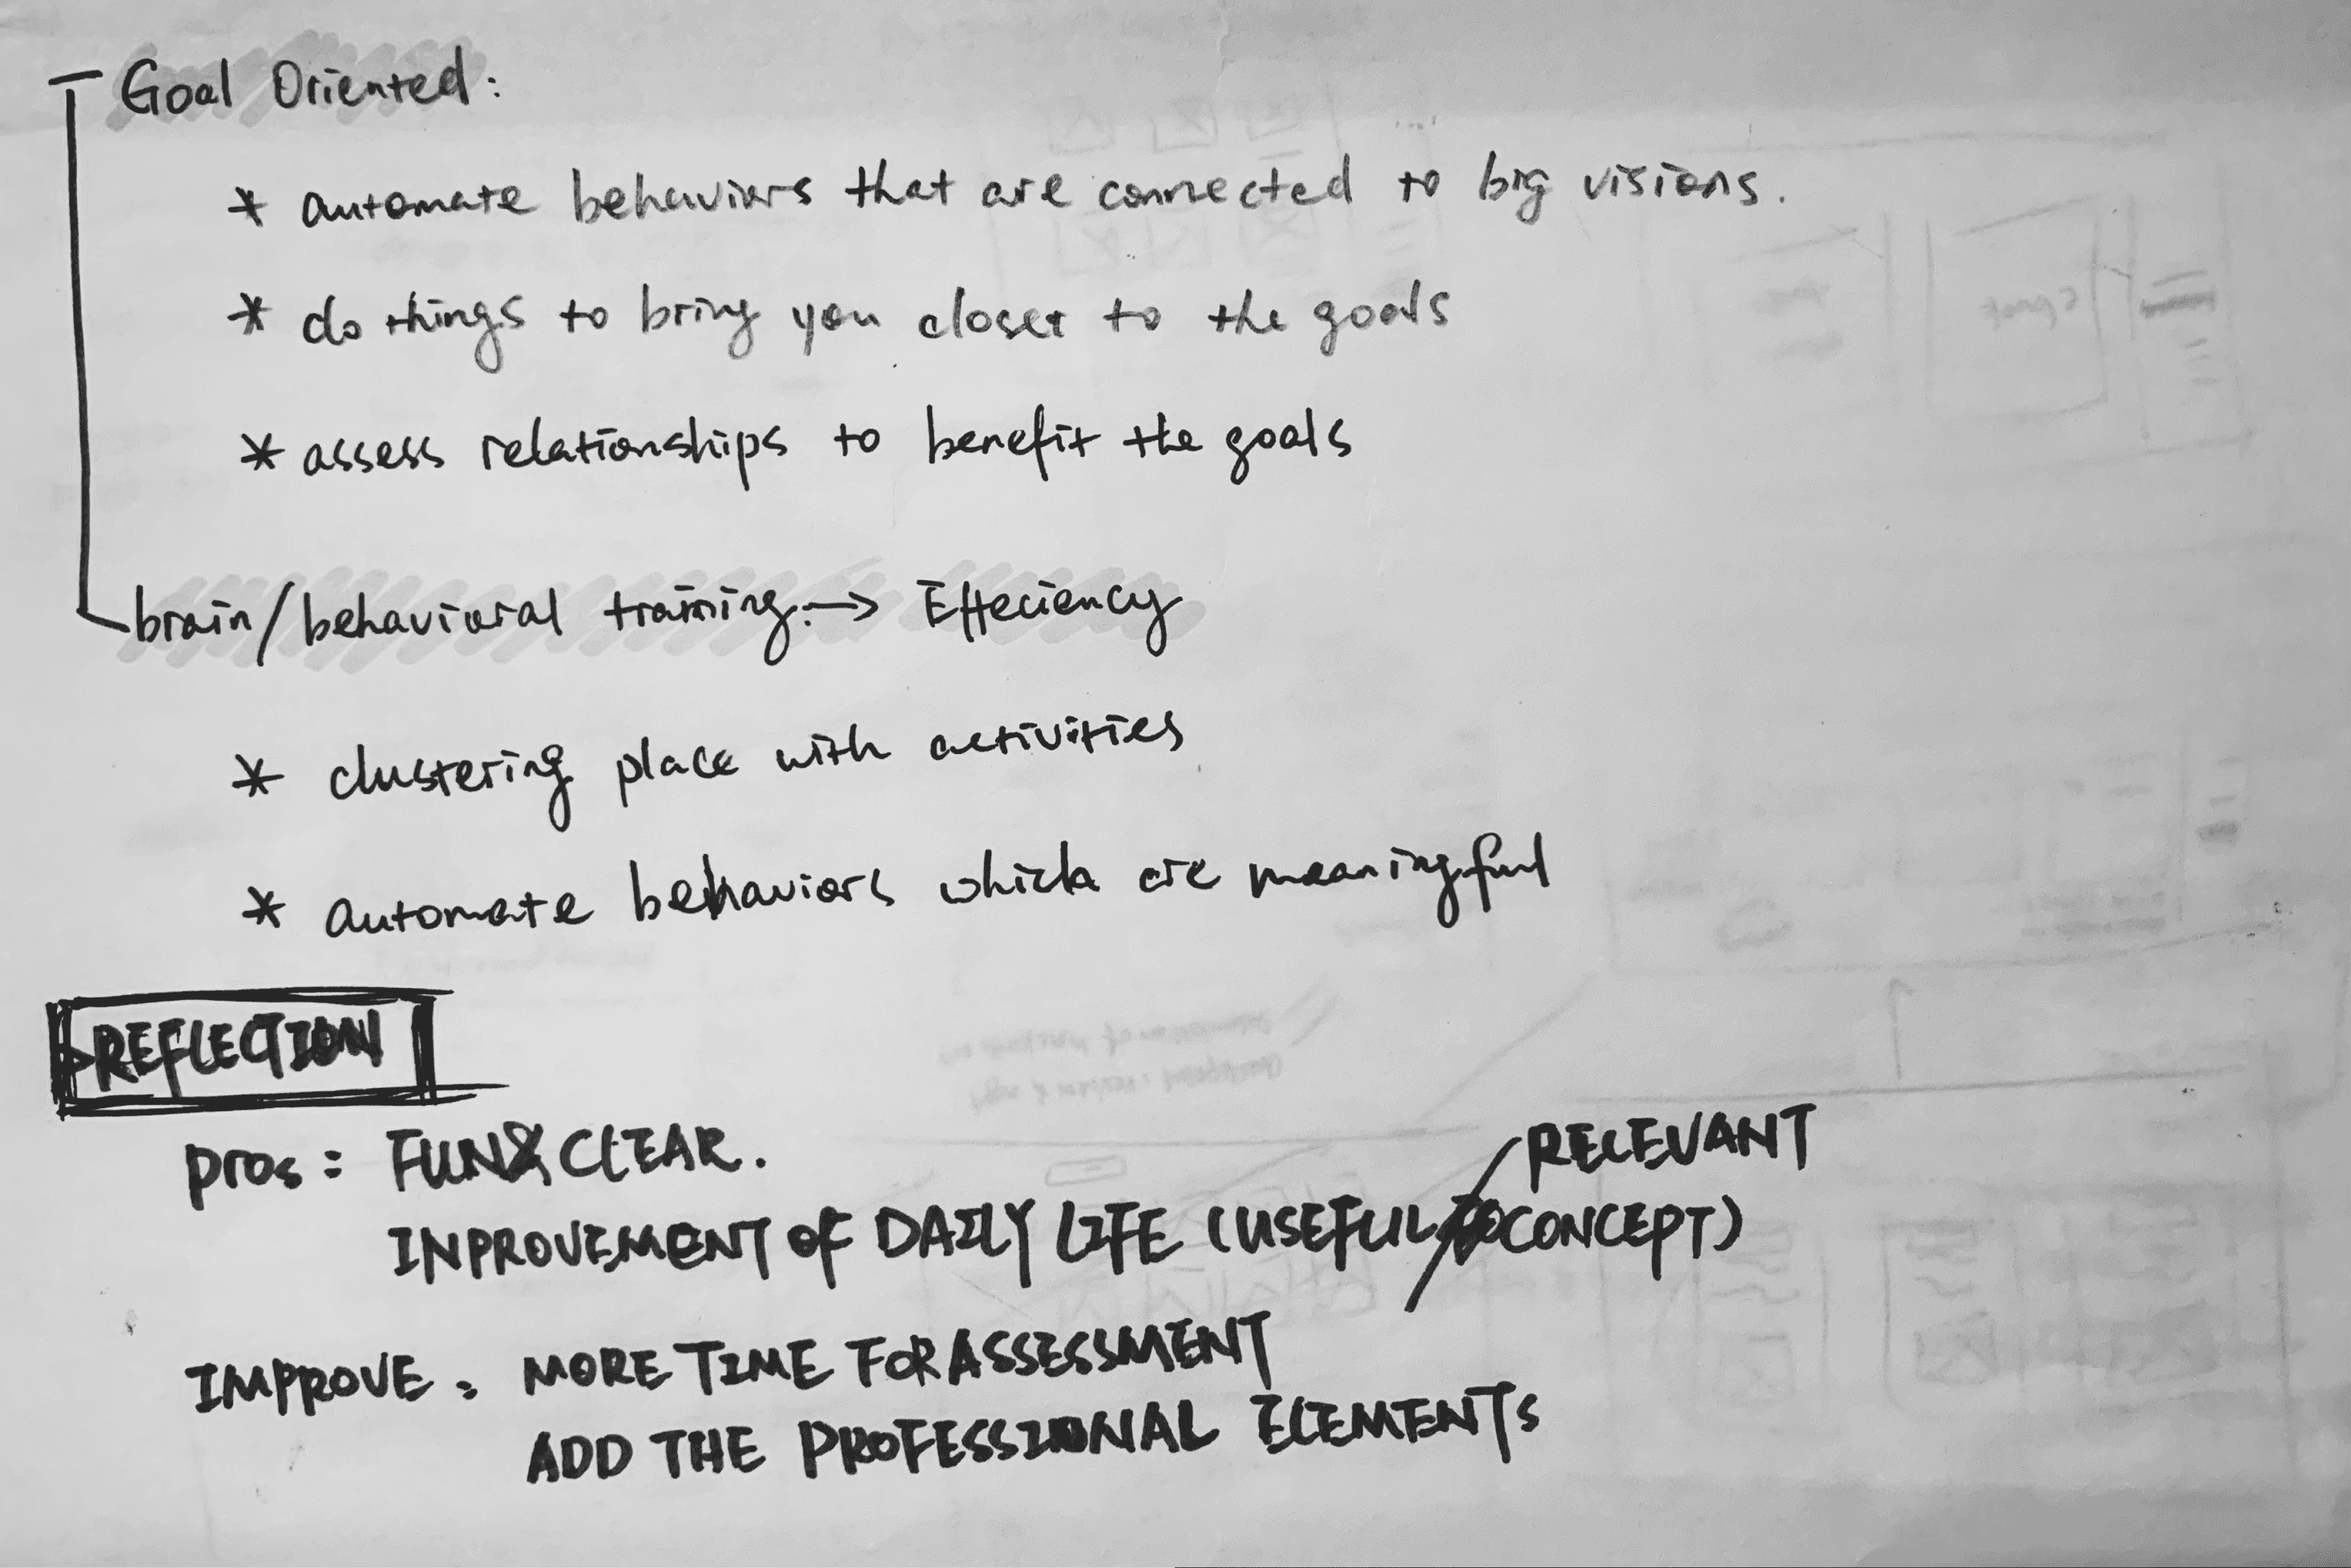 Goal Oriented:
* automate behaviors that are connected to big visions.
* do things to bring you closer to the goals
* assess relationships to benefit the goals
brain/behaviorial training: → Effeciency
* clustering place with activities
* automate behaviors which are meaningful
REFLECTION
pros: FUN & CLEAR.
RELEVANT
INPROVEMENT OF DAILY LIFE (USEFUL / CONCEPT)
IMPROVE: MORE TIME FOR ASSESSMENT
ADD THE PROFESSIONAL ELEMENTS